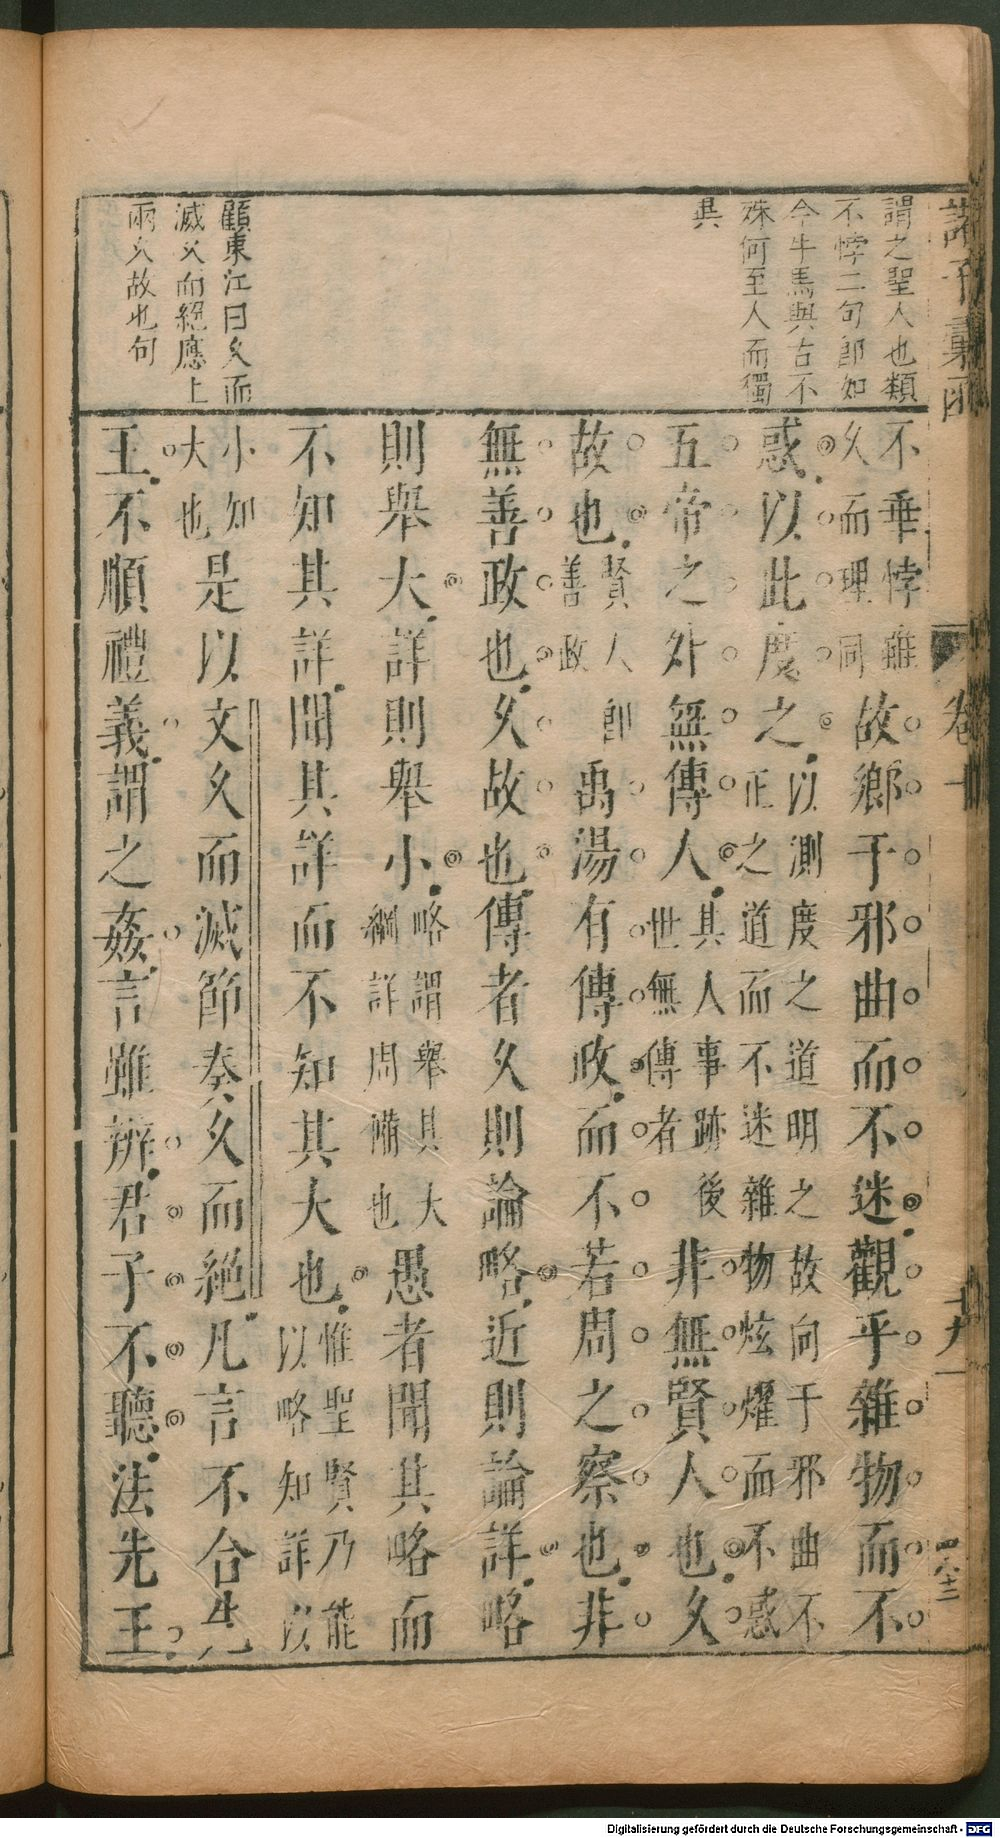 謂之聖人也類
不悖二句郎如
今牛馬與古不
殊何至人而獨
異
顧東江曰久而
滅久而絕應上
兩久故也句
諸子彙函
卷十
四八十二
不垂悖雖
久而理同
故鄉于邪曲而不迷觀乎雜物而不
惑以此度之
以測度之道明之故向于邪曲不
正之道而不迷雜物炫燿而不惑
五帝之外無傳人
其人事跡後
世無傳者
非無賢人也久
故也
賢人郎
善政
禹湯有傳政而不若周之察也非
無善政也久故也傳者久則論略近則論詳略
則舉大詳則舉小
略謂舉其大
綱詳周備也
愚者聞其略而
不知其詳聞其詳而不知其大也
惟聖賢乃能
以略知詳以
小知
大也
是以文久而滅節奏久而絕凡言不合先
王不順禮義謂之姦言雖辨君子不聽法先王
Digitalisierung gefördert durch die Deutsche Forschungsgemeinschaft - DFG